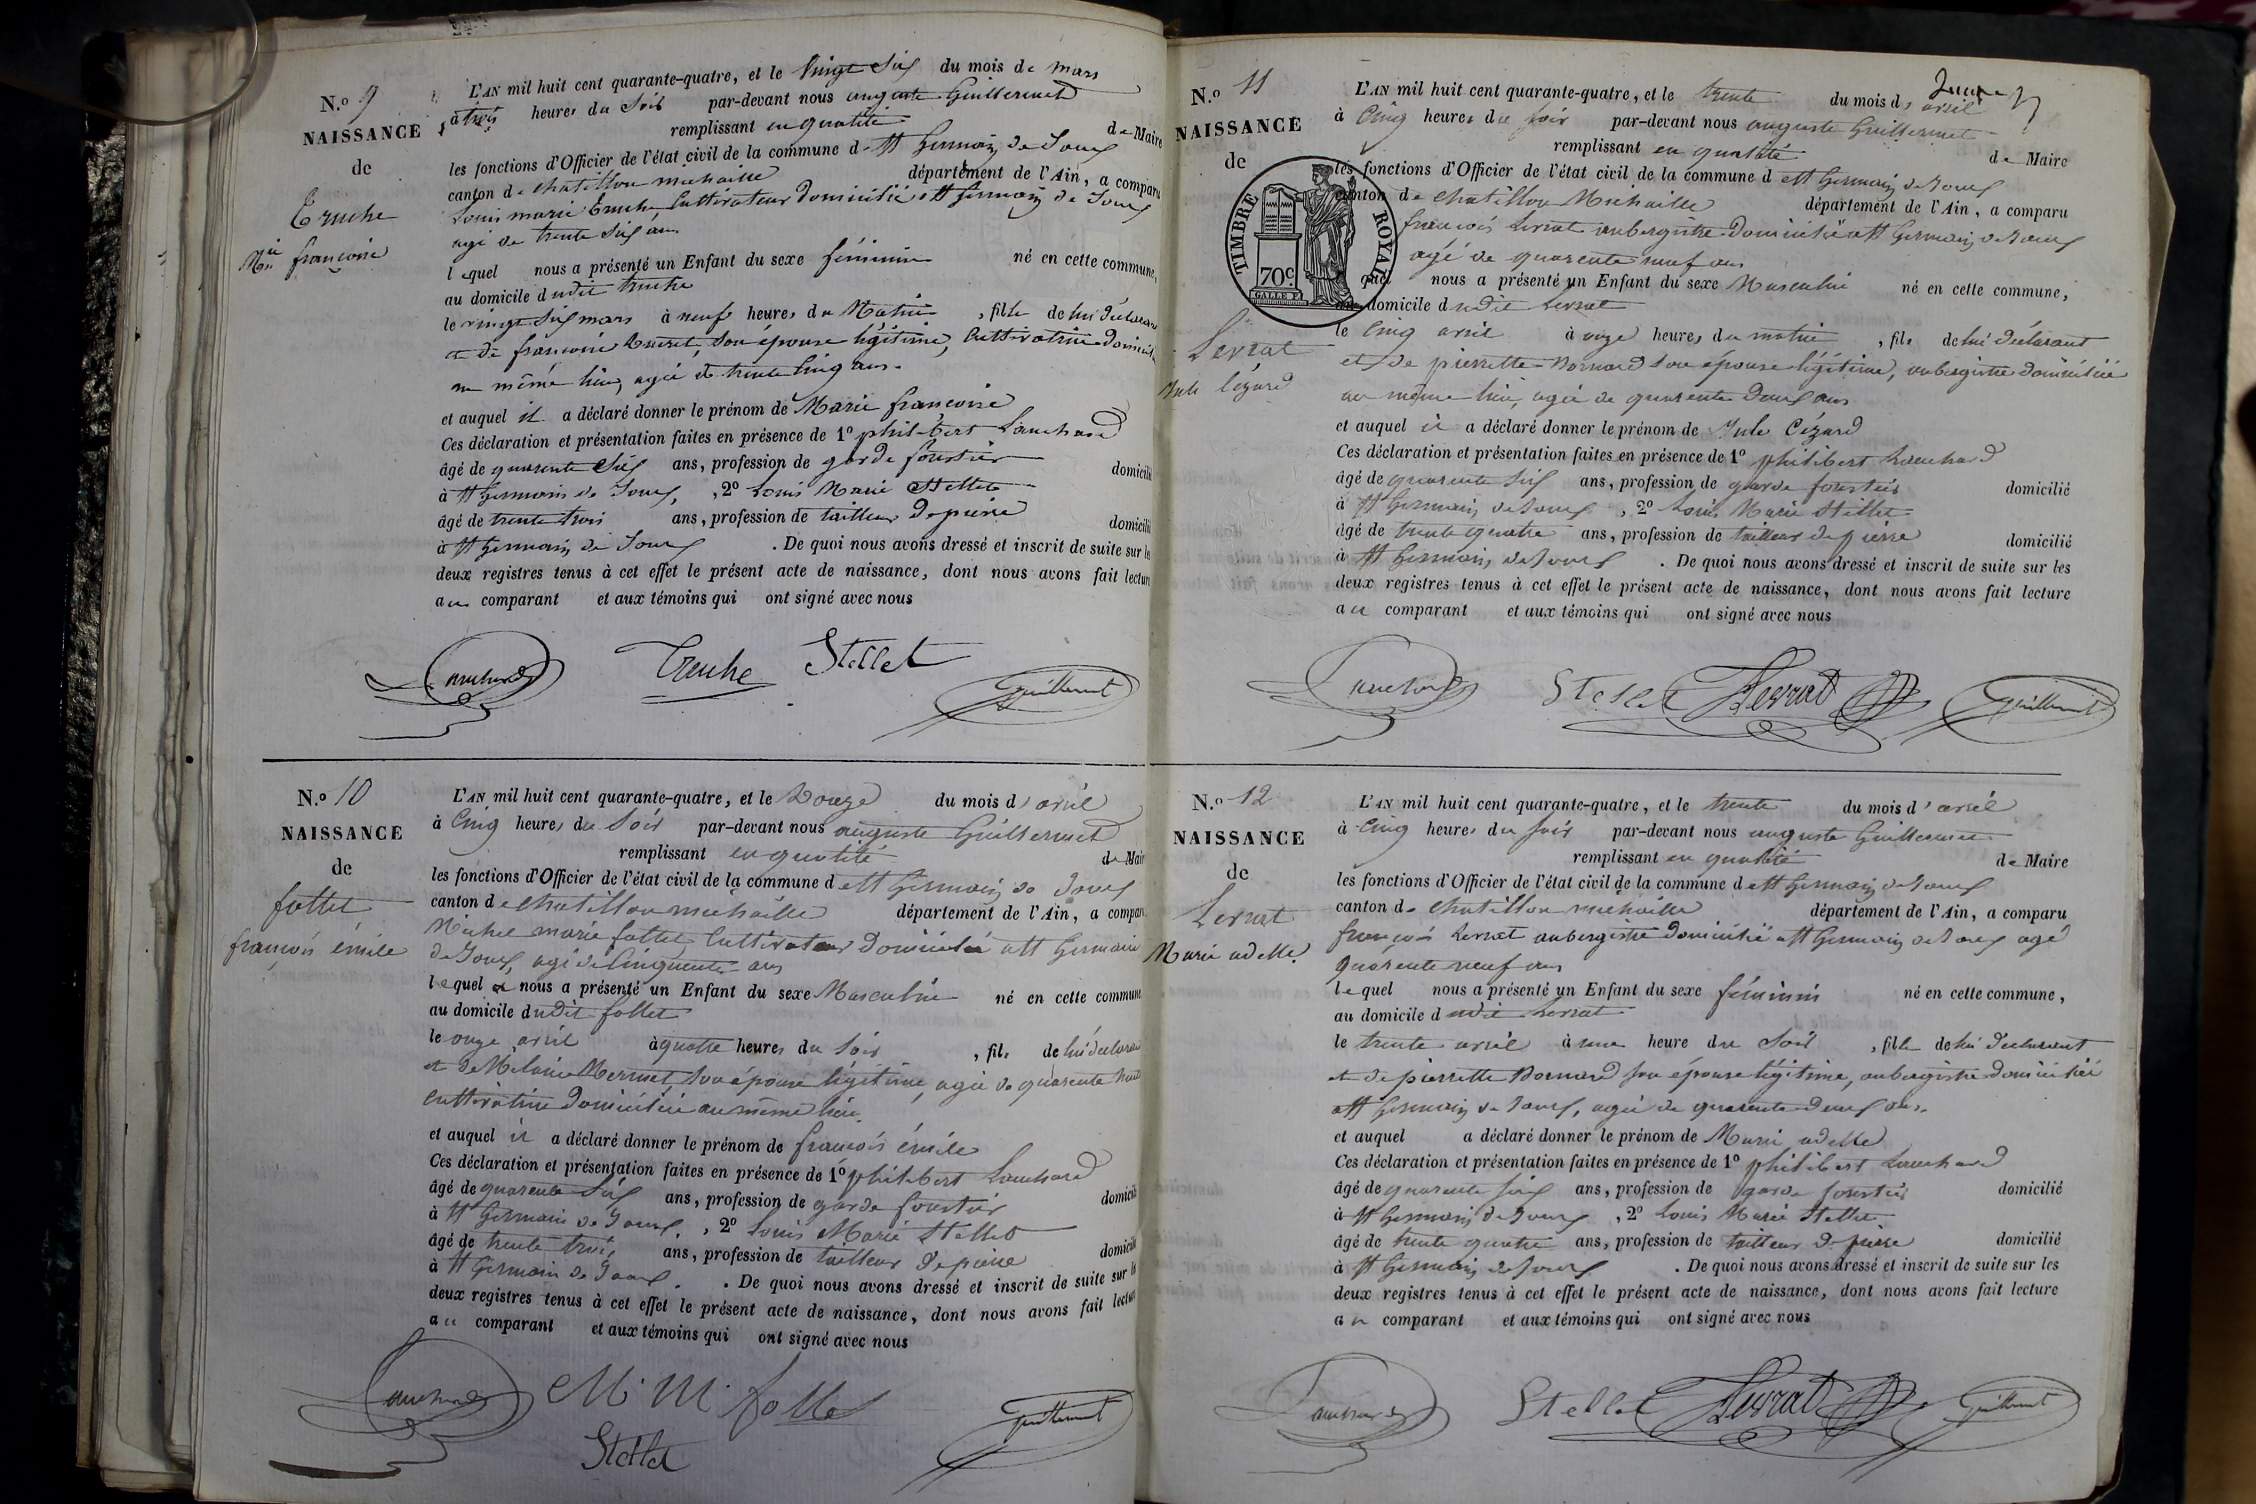 N.º 9
NAISSANCE
de
Truche
Mie françoise
L'AN mil huit cent quarante-quatre, et le vingt six du mois de mars
à trois heures du soir par-devant nous auguste Guillermet
remplissant en qualité de Maire
les fonctions d'Officier de l'état civil de la commune de St Germain de Joux
canton de chatillon michaille département de l'Ain, a comparu
Louis marie Truche, Cultivateur domicilié à St Germain de Joux
agé de trente six ans
lequel nous a présenté un Enfant du sexe féminin né en cette commune,
au domicile dudit truche
le vingt six mars à neuf heures du Matin, fille de lui déclarant
et de françoise son épouse légitime, Cultivatrice domiciliée
au même lieu, agée de trente cinq ans.
et auquel il a déclaré donner le prénom de Marie françoise
Ces déclaration et présentation faites en présence de 1º philibert Lauchard
âgé de quarente six ans, profession de garde forestier domicilié
à St Germain de Joux, , 2º Louis Marie Stellet
âgé de trente trois ans, profession de tailleur de pierre domicilié
à St Germain de Joux . De quoi nous avons dressé et inscrit de suite sur les
deux registres tenus à cet effet le présent acte de naissance, dont nous avons fait lecture
au comparant et aux témoins qui ont signé avec nous
Lauchard Truche Stellet Guillermet
N.º 10
NAISSANCE
de
follet
françois émile
L'AN mil huit cent quarante-quatre, et le Douze du mois d'avril
à Cinq heures du Soir par-devant nous auguste Guillermet
remplissant en qualité de Maire
les fonctions d'Officier de l'état civil de la commune de St Germain de Joux
canton de chatillon michaille département de l'Ain, a comparu
Michel marie follet Cultivateur Domicilié à St Germain
de Joux, agé de Cinquente ans
lequel nous a présenté un Enfant du sexe Masculin né en cette commune
au domicile dudit follet
le onze avril à quatre heures du Soir, fils de lui déclarant
et de Melanie Mermet, son épouse légitime, agée de quarente
cultivatrice Domiciliée au même lieu
et auquel il a déclaré donner le prénom de françois émile
Ces déclaration et présentation faites en présence de 1º philibert Lauchard
âgé de quarente six ans, profession de garde forestier domicilié
à St Germain de Joux. , 2º Louis Marie Stellet
âgé de trente trois ans, profession de tailleur de pierre domicilié
à St Germain de Joux. . De quoi nous avons dressé et inscrit de suite sur les
deux registres tenus à cet effet le présent acte de naissance, dont nous avons fait lecture
au comparant et aux témoins qui ont signé avec nous
Lauchard M. M. follet Guillermet
Stellet
N.º 11
NAISSANCE
de
TIMBRE ROYAL
70c
Levrat
Jule Cézard
L'AN mil huit cent quarante-quatre, et le trente du mois d'avril
à Cinq heures du soir par-devant nous auguste Guillermet
remplissant en qualité de Maire
les fonctions d'Officier de l'état civil de la commune de St Germain de Joux
canton de chatillon Michaille département de l'Ain, a comparu
françois Levrat aubergiste domicilié à St Germain de Joux
agé de quarente neuf ans
quel nous a présenté un Enfant du sexe Masculin né en cette commune,
au domicile dudit Levrat
le Cinq avril à onze heures du matin, fils de lui déclarant
et de pierrette Bornard son épouse légitime, aubergiste domiciliée
au même lieu, agée de quarente deux ans
et auquel il a déclaré donner le prénom de Jule Cézard
Ces déclaration et présentation faites en présence de 1º philibert Lauchard
âgé de quarente six ans, profession de garde forestier domicilié
à St Germain de Joux , 2º Louis Marie Stellet
âgé de trente quatre ans, profession de tailleur de pierre domicilié
à St Germain de Joux . De quoi nous avons dressé et inscrit de suite sur les
deux registres tenus à cet effet le présent acte de naissance, dont nous avons fait lecture
au comparant et aux témoins qui ont signé avec nous
Lauchard Stellet Levrat Guillermet
N.º 12
NAISSANCE
de
Levrat
Marie adelle.
L'AN mil huit cent quarante-quatre, et le trente du mois d'avril
à Cinq heures du soir par-devant nous auguste Guillermet
remplissant en qualité de Maire
les fonctions d'Officier de l'état civil de la commune de St Germain de Joux
canton de chatillon michaille département de l'Ain, a comparu
françois Levrat aubergiste domicilié à St Germain de Joux agé
quarente neuf ans
lequel nous a présenté un Enfant du sexe féminin né en cette commune,
au domicile dudit Levrat
le trente avril à une heure du Soir, fille de lui déclarant
et de pierrette Bornard son épouse légitime, aubergiste domiciliée
à St Germain de Joux, agée de quarente deux ans.
et auquel a déclaré donner le prénom de Marie adelle
Ces déclaration et présentation faites en présence de 1º philibert Lauchard
âgé de quarente six ans, profession de garde forestier domicilié
à St Germain de Joux , 2º Louis Marie Stellet
âgé de trente quatre ans, profession de tailleur de pierre domicilié
à St Germain de Joux . De quoi nous avons dressé et inscrit de suite sur les
deux registres tenus à cet effet le présent acte de naissance, dont nous avons fait lecture
au comparant et aux témoins qui ont signé avec nous
Lauchard Stellet Levrat Guillermet